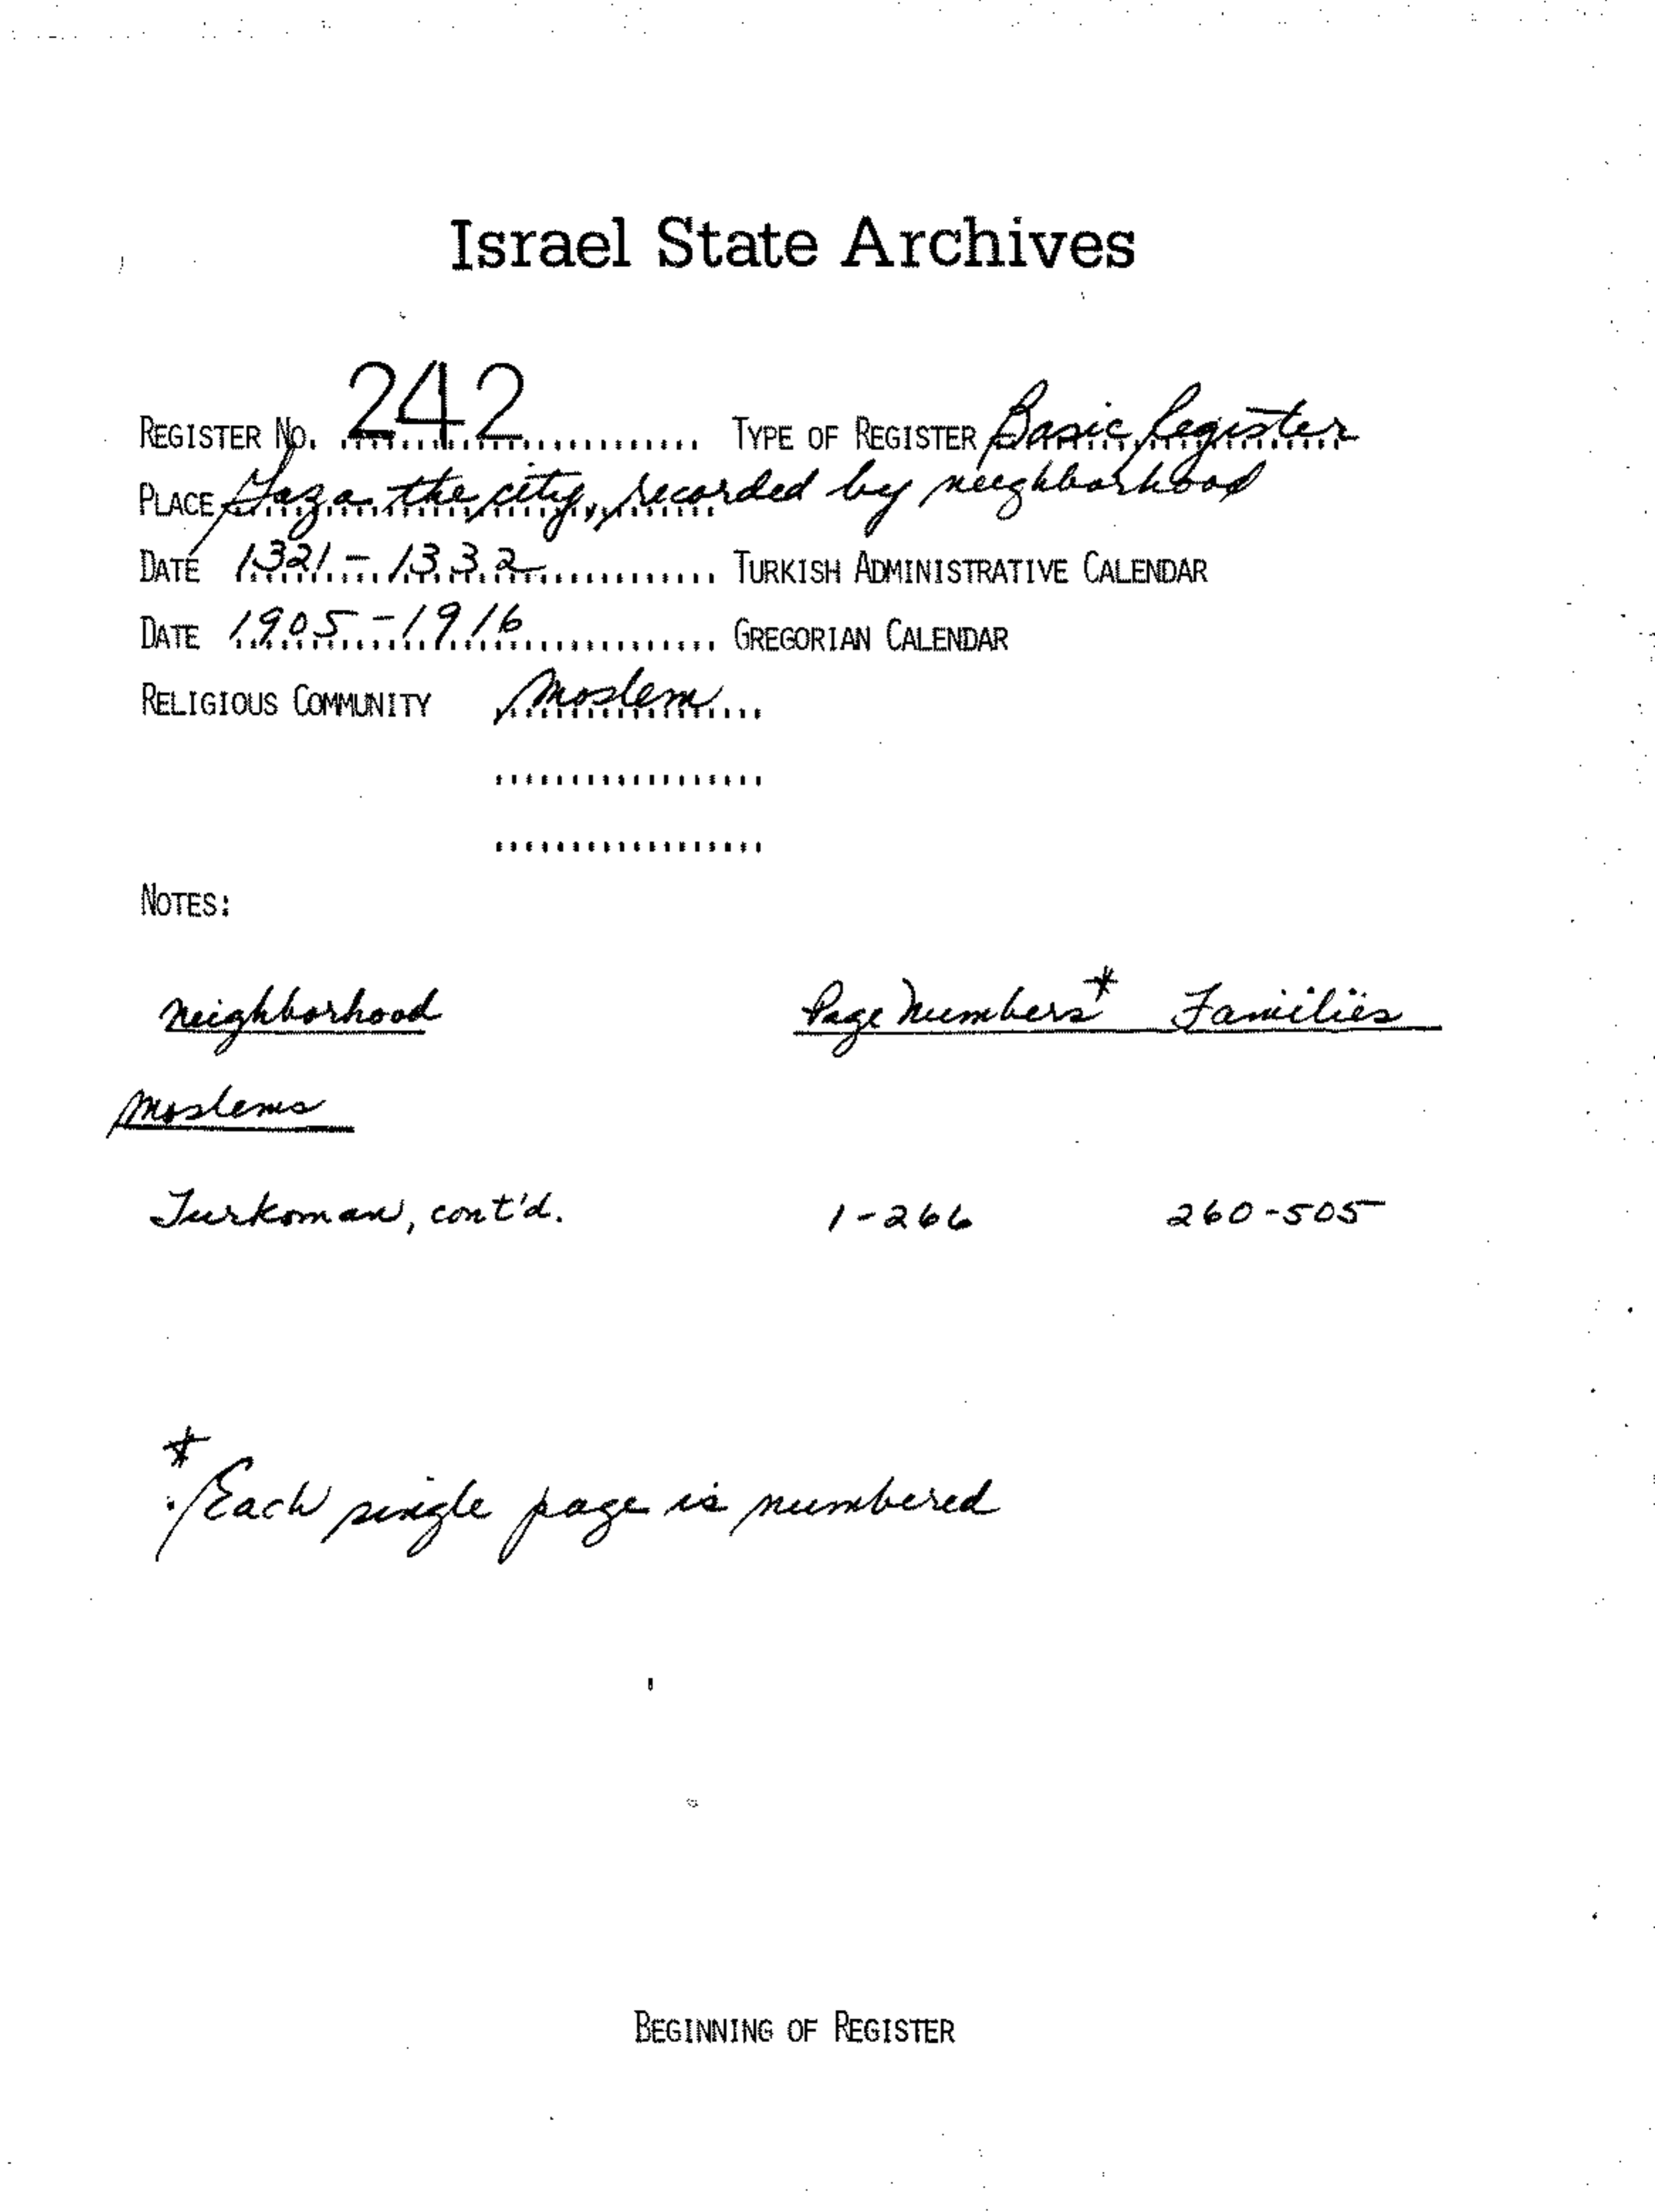 Israel State Archives
REGISTER NO. 242 TYPE OF REGISTER Basic Register
PLACE Gaza the city, recorded by neighborhood
DATE 1321-1332 TURKISH ADMINISTRATIVE CALENDAR
DATE 1905-1916 GREGORIAN CALENDAR
RELIGIOUS COMMUNITY Moslem
NOTES:
Neighborhood Page Numbers* Families
Moslems
Turkoman, cont'd. 1-266 260-505
* Each single page is numbered
BEGINNING OF REGISTER